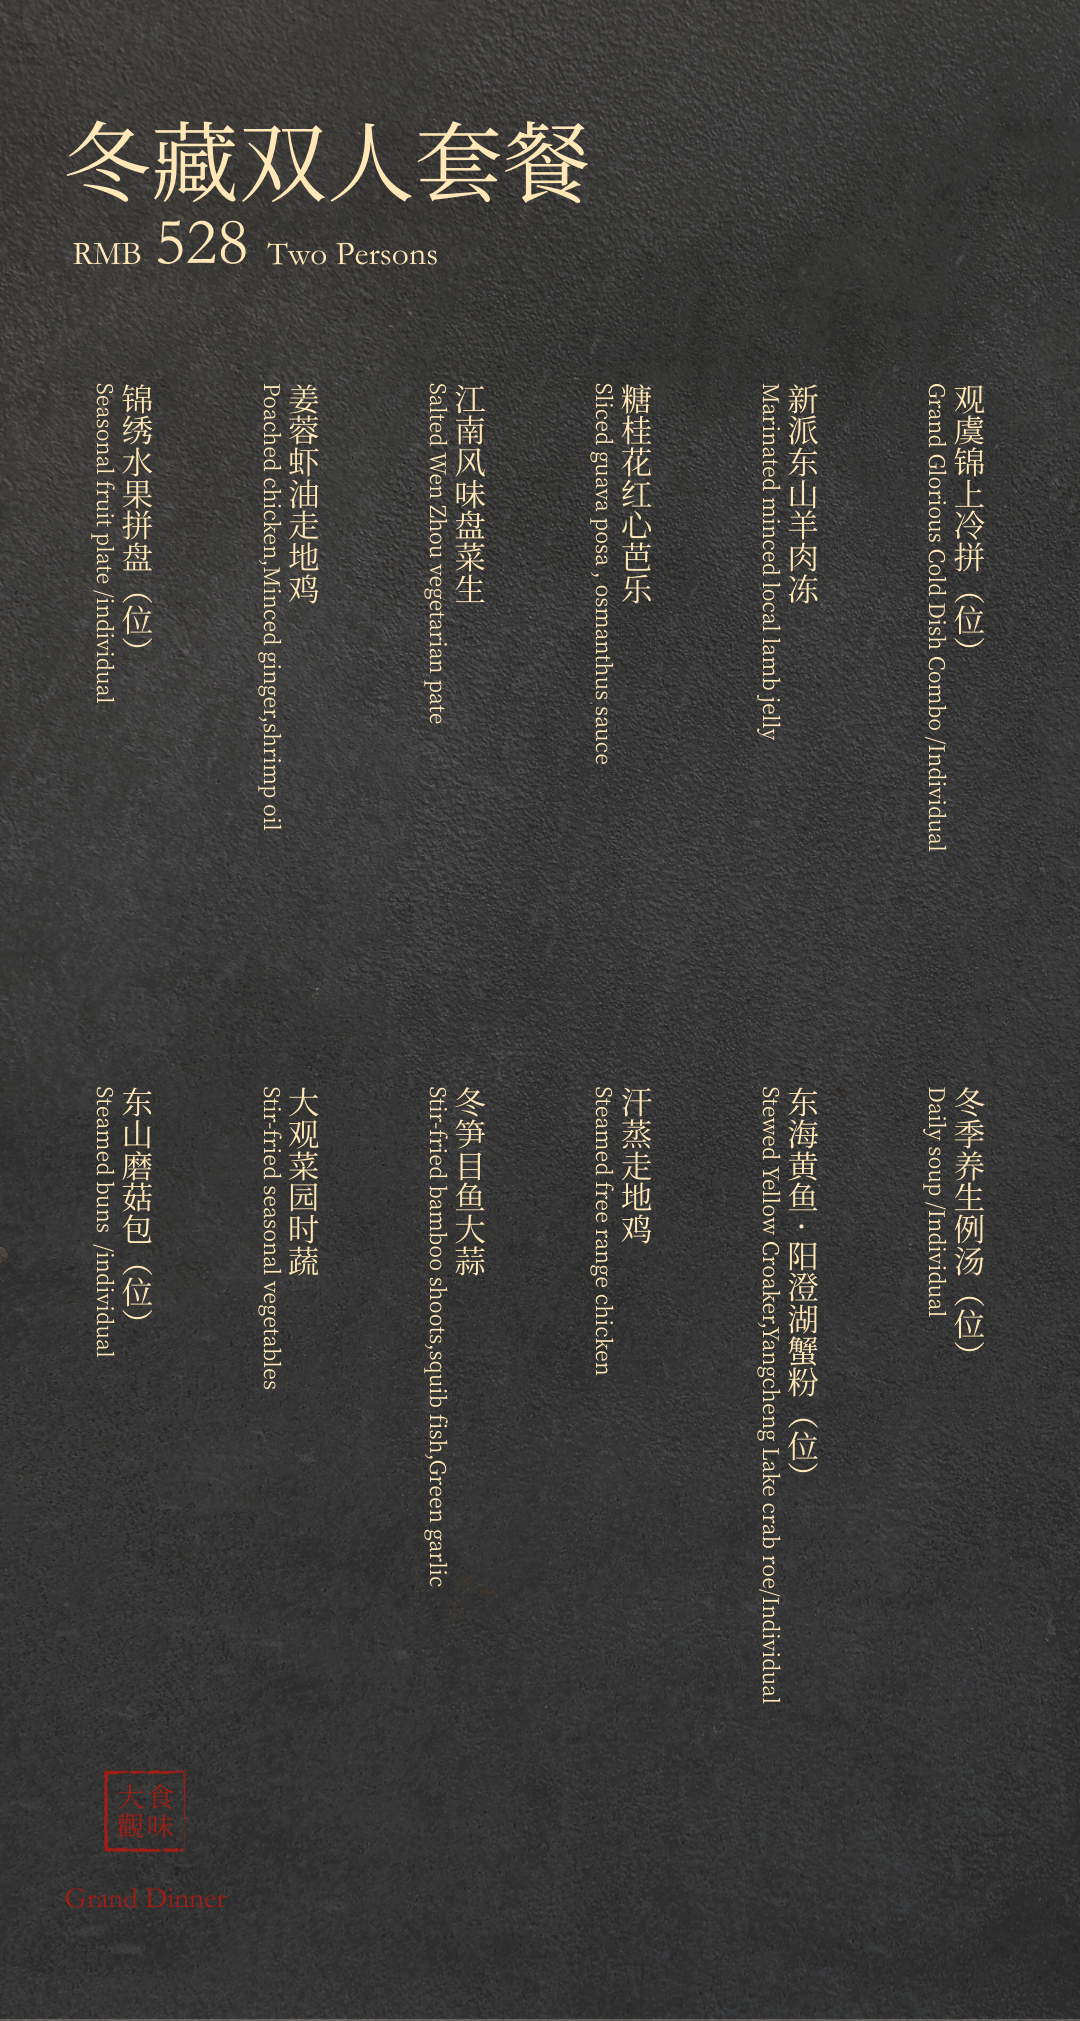 冬藏双人套餐
RMB 528 Two Persons
观虞锦上冷拼（位）
Grand Glorious Cold Dish Combo /Individual
新派东山羊肉冻
Marinated minced local lamb jelly
糖桂花红心芭乐
Sliced guava posa , osmanthus sauce
江南风味盘菜生
Salted Wen Zhou vegetarian pate
姜蓉虾油走地鸡
Poached chicken,Minced ginger,shrimp oil
锦绣水果拼盘（位）
Seasonal fruit plate /individual
冬季养生例汤（位）
Daily soup /Individual
东海黄鱼·阳澄湖蟹粉（位）
Stewed Yellow Croaker,Yangcheng Lake crab roe/Individual
汗蒸走地鸡
Steamed free range chicken
冬笋目鱼大蒜
Stir-fried bamboo shoots,squib fish,Green garlic
大观菜园时蔬
Stir-fried seasonal vegetables
东山磨菇包（位）
Steamed buns /individual
食味
大觀
Grand Dinner